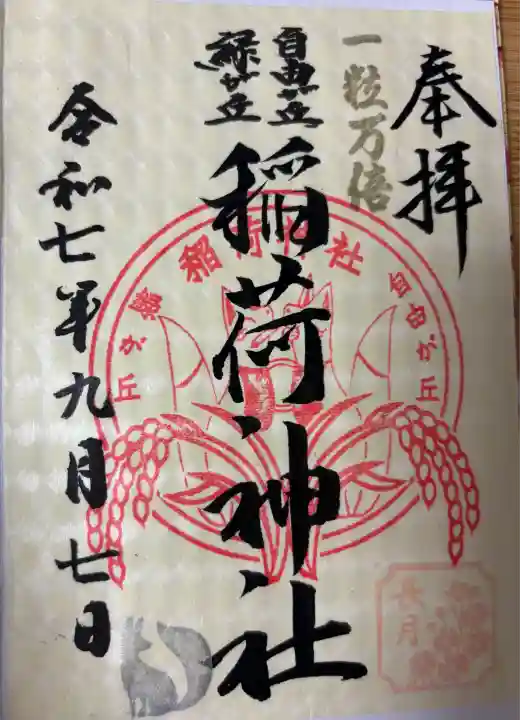 奉拝
一粒万倍
自由が丘
緑が丘
稲荷神社
令和七年九月七日
緑が丘
稲荷神社
自由が丘
長月